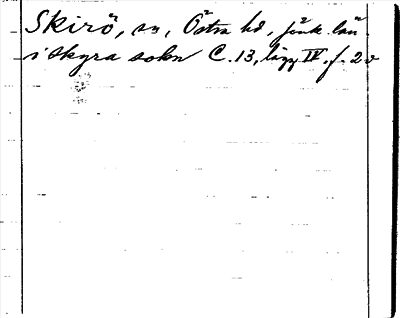 Skirö, sn, Östra hd, Jönk. län.
i skyra sokn C. 13, lägg IV, f. 2 v